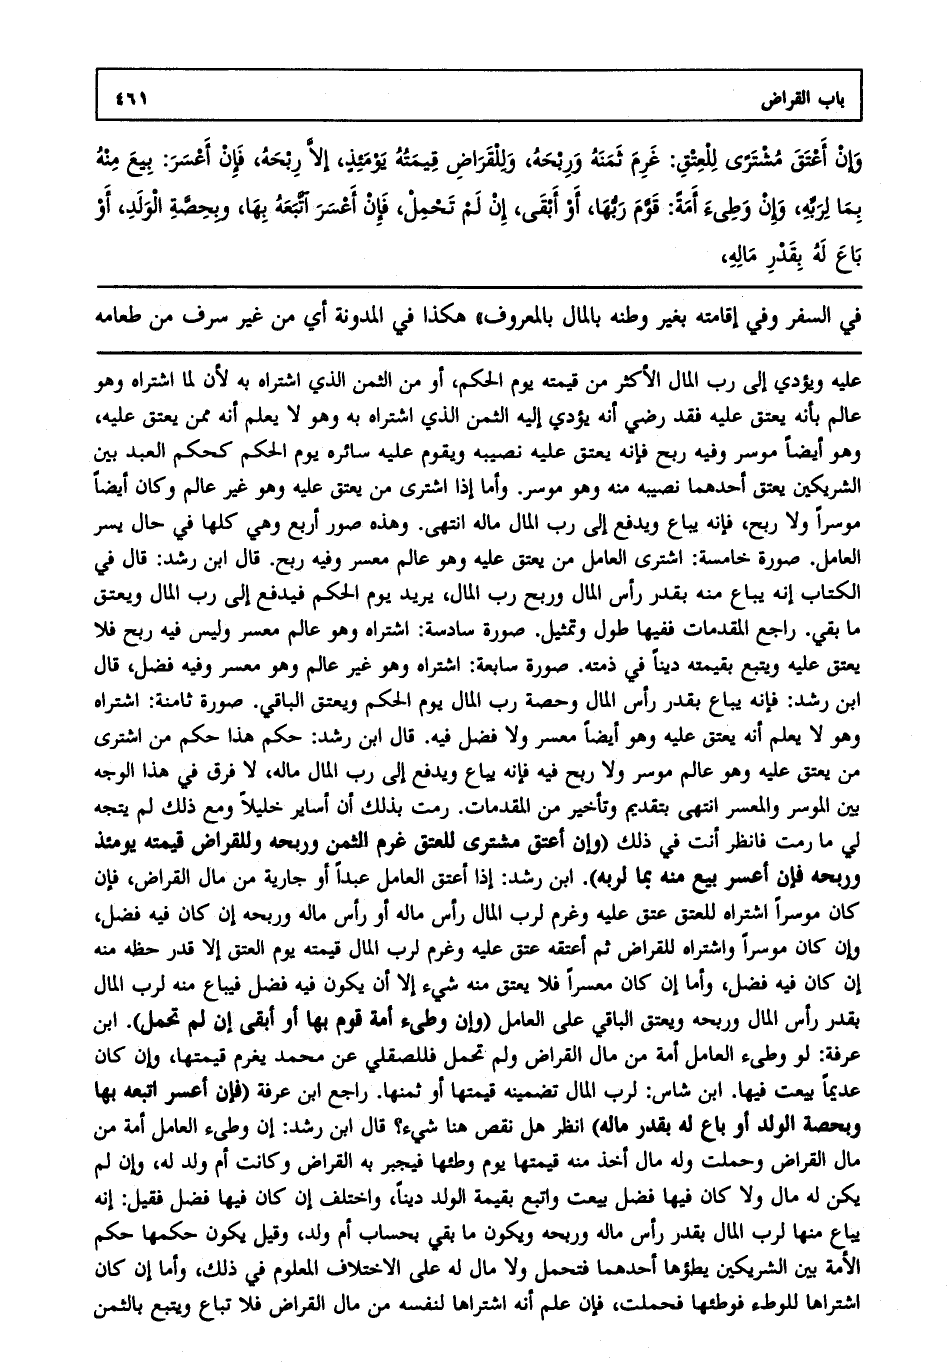 باب القراض ٤٦١
وَإِنْ أَعْتَقَ مُشْتَرًى لِلْعِتْقِ: غَرِمَ ثَمَنَهُ وَرِبْحَهُ، وَلِلْقَرَاضِ قِيمَتُهُ يَوْمَئِذٍ، إِلاَّ رِبْحَهُ، فَإِنْ أَعْسَرَ: بِيعَ مِنْهُ
بِمَا لِرَبِّهِ، وَإِنْ وَطِىءَ أَمَةً: قَوَّمَ رَبُّهَا، أَوْ أَبْقَى، إِنْ لَمْ تَحْمِلْ، فَإِنْ أَعْسَرَ اتَّبَعَهُ بِهَا، وَبِحِصَّةِ الْوَلَدِ، أَوْ
بَاعَ لَهُ بِقَدْرِ مَالِهِ،
في السفر وفي إقامته بغير وطنه بالمال بالمعروف» هكذا في المدونة أي من غير سرف من طعامه
عليه ويؤدي إلى رب المال الأكثر من قيمته يوم الحكم، أو من الثمن الذي اشتراه به لأن لما اشتراه وهو
عالم بأنه يعتق عليه فقد رضي أنه يؤدي إليه الثمن الذي اشتراه به وهو لا يعلم أنه ممن يعتق عليه،
وهو أيضاً موسر وفيه ربح فإنه يعتق عليه نصيبه ويقوم عليه سائره يوم الحكم كحكم العبد بين
الشريكين يعتق أحدهما نصيبه منه وهو موسر. وأما إذا اشترى من يعتق عليه وهو غير عالم وكان أيضاً
موسراً ولا ربح، فإنه يباع ويدفع إلى رب المال ماله انتهى. وهذه صور أربع وهي كلها في حال يسر
العامل. صورة خامسة: اشترى العامل من يعتق عليه وهو عالم معسر وفيه ربح. قال ابن رشد: قال في
الكتاب إنه يباع منه بقدر رأس المال وربح رب المال، يريد يوم الحكم فيدفع إلى رب المال ويعتق
ما بقي. راجع المقدمات ففيها طول وتمثيل. صورة سادسة: اشتراه وهو عالم معسر وليس فيه ربح فلا
يعتق عليه ويتبع بقيمته ديناً في ذمته. صورة سابعة: اشتراه وهو غير عالم وهو معسر وفيه فضل، قال
ابن رشد: فإنه يباع بقدر رأس المال وحصة رب المال يوم الحكم ويعتق الباقي. صورة ثامنة: اشتراه
وهو لا يعلم أنه يعتق عليه وهو أيضاً معسر ولا فضل فيه. قال ابن رشد: حكم هذا حكم من اشترى
من يعتق عليه وهو عالم موسر ولا ربح فيه فإنه يباع ويدفع إلى رب المال ماله، لا فرق في هذا الوجه
بين الموسر والمعسر انتهى بتقديم وتأخير من المقدمات. رمت بذلك أن أساير خليلاً ومع ذلك لم يتجه
لي ما رمت فانظر أنت في ذلك (وإن أعتق مشترى للعتق غرم الثمن وربحه وللقراض قيمته يومئذ
وربحه فإن أعسر بيع منه بما لربه). ابن رشد: إذا أعتق العامل عبداً أو جارية من مال القراض، فإن
كان موسراً اشتراه للعتق عتق عليه وغرم لرب المال رأس ماله أو رأس ماله وربحه إن كان فيه فضل،
وإن كان موسراً واشتراه للقراض ثم أعتقه عتق عليه وغرم لرب المال قيمته يوم العتق إلا قدر حظه منه
إن كان فيه فضل، وأما إن كان معسراً فلا يعتق منه شيء إلا أن يكون فيه فضل فيباع منه لرب المال
بقدر رأس المال وربحه ويعتق الباقي على العامل (وإن وطىء أمة قوم بها أو أبقى إن لم تحمل). ابن
عرفة: لو وطىء العامل أمة من مال القراض ولم تحمل فللصقلي عن محمد يغرم قيمتها، وإن كان
عديماً بيعت فيها. ابن شاس: لرب المال تضمينه قيمتها أو ثمنها. راجع ابن عرفة (فإن أعسر اتبعه بها
وبحصة الولد أو باع له بقدر ماله) انظر هل نقص هنا شيء؟ قال ابن رشد: إن وطىء العامل أمة من
مال القراض وحملت وله مال أخذ منه قيمتها يوم وطئها فيجبر به القراض وكانت أم ولد له، وإن لم
يكن له مال ولا كان فيها فضل بيعت واتبع بقيمة الولد ديناً، واختلف إن كان فيها فضل فقيل: إنه
يباع منها لرب المال بقدر رأس ماله وربحه ويكون ما بقي بحساب أم ولد، وقيل يكون حكمها حكم
الأمة بين الشريكين يطؤها أحدهما فتحمل ولا مال له على الاختلاف المعلوم في ذلك، وأما إن كان
اشتراها للوطء فوطئها فحملت، فإن علم أنه اشتراها لنفسه من مال القراض فلا تباع ويتبع بالثمن